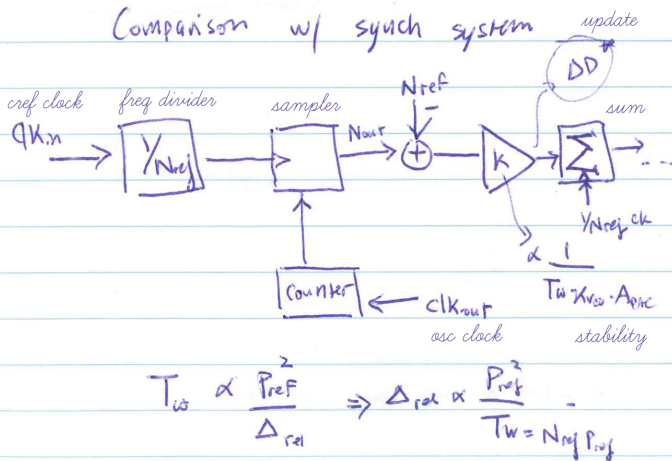 Comparison w/ synch system
update
ΔD
cref clock freq divider sampler Nref sum
φKin 1/Nref Nout + − K Σ ...
1/Nref ck
Counter clkout
osc clock
∝ 1 / Tw·Kvco·APVC
stability
Tω ∝ Pref² / Δrel ⇒ Δrel ∝ Pref² / Tw = Nref Pref